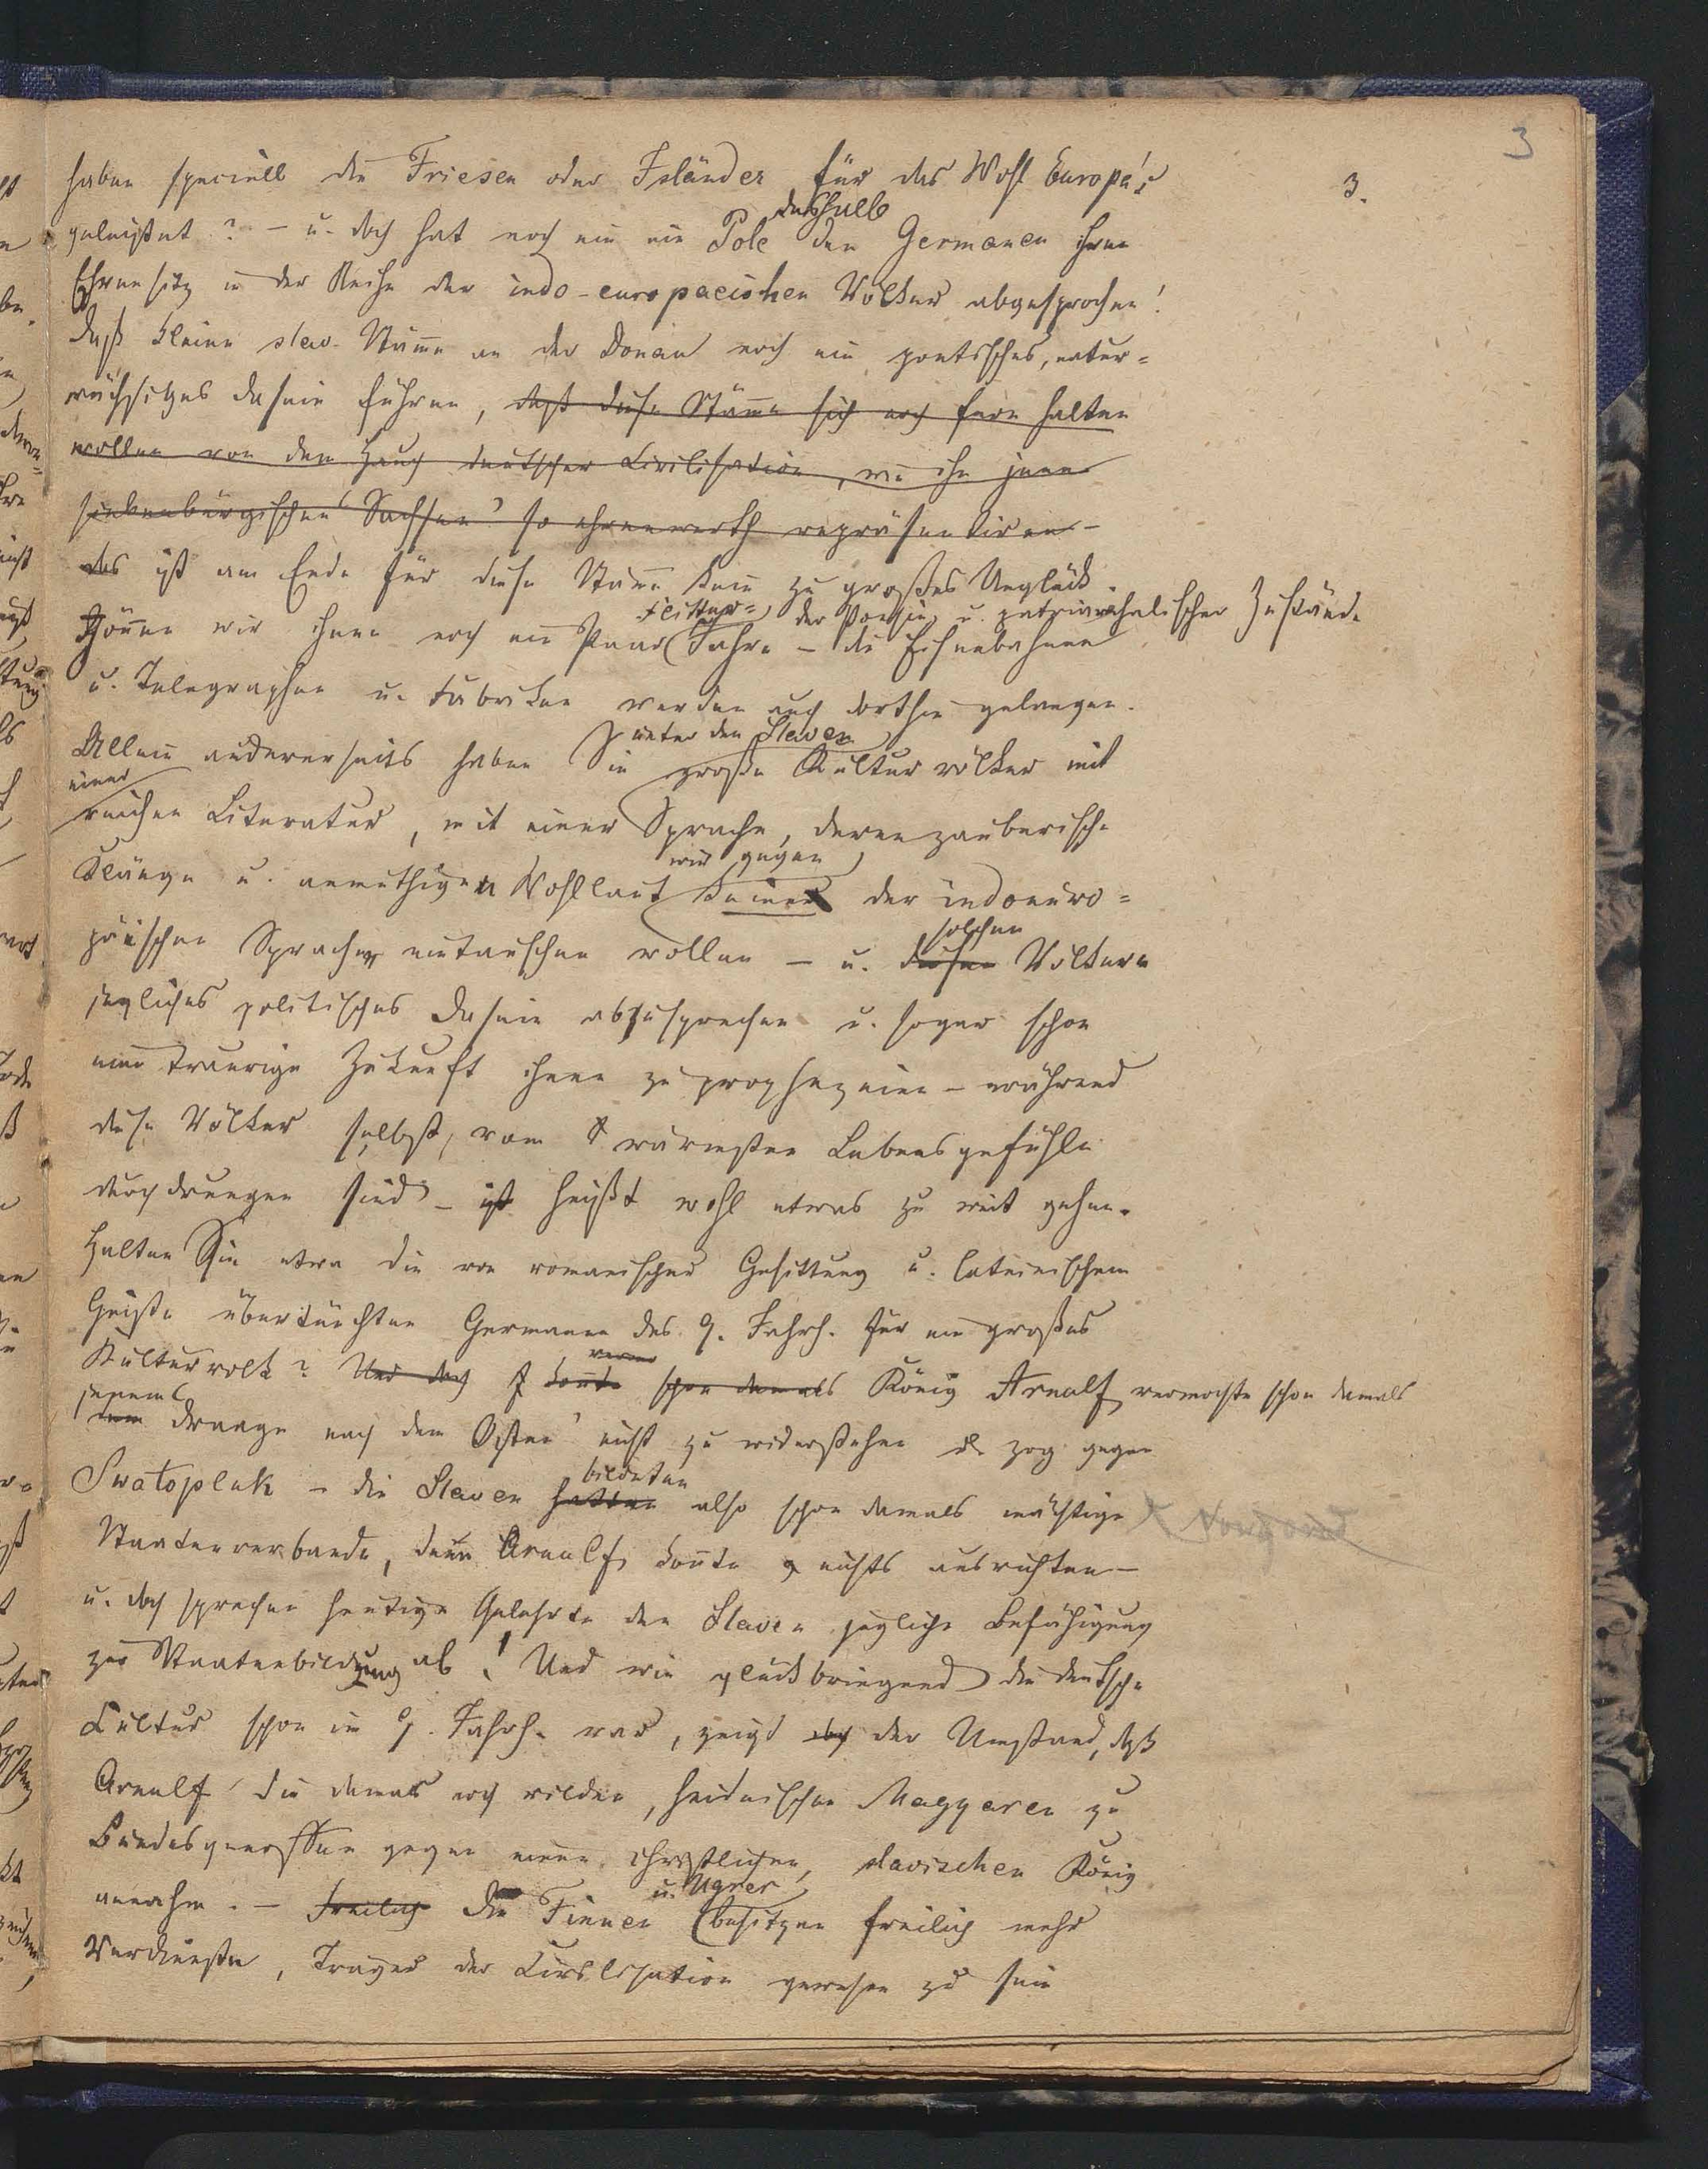 3
3.
haben speciell die Friesen oder Isländer für das Wohl Europa's
geleistet? – u. doch hat noch nie ein Pole deßhalb den Germanen ihren
Ehrensitz in der Reihe der indo-europaeischen Völker abgesprochen!
Daß kleine slav. Stäme an der Donau noch ein poetisches, natur=
wüchsiges Dasein führen, daß diese Stäme sich noch fern halten
wollen von dem Hauch deutscher Civilisation, wie ihn jene
siebenbürgischen 'Sachsen' so ehrenwerth repräsentiren –
das ist am Ende für diese Stäme kein zu großes Unglück.
Gönnen wir ihnen noch ein Paar Flitter= Jahre der Poesie u. patriarchalischer Zustände
– die Eisenbahnen
u. Telegraphen u. Fabriken werden auch dorthin gelangen.
Allein andererseits haben Sie unter den Slaven große Kulturvölker mit
einer reichen Literatur, mit einer Sprache, deren zauberische
Klänge u. anmuthigen Wohllaut wir gegen keine der indoeuro=
päischen Sprachen eintauschen wollen – u. diesen solchen Völkern
jegliches politisches Dasein abzusprechen u. sogar schon
eine traurige Zukunft ihnen zu prophezeien – während
diese Völker selbst, vom wärmsten Lebensgefühle
durchdrungen sind – ist heißt wohl etwas zu weit gehen.
Halten Sie etwa die von romanischer Gesittung u. lateinischem
Geiste übertünchten Germanen des 9. Jahrh. für ein großes
Kulturvolk? Und doch konnte schon damals König Arnulf vermochte schon damals
jenem 'Drange nach dem Osten' nicht zu widerstehen & zog gegen
Swatopluk – die Slaven hatten bildeten also schon damals mächtige
Staatenverbande, denn Arnulf konnte nichts ausrichten –
u. doch sprechen heutige Gelehrte den Slaven jegliche Befähigung
zur Staatenbildung ab! Und wie glückbringend die deutsche
Cultur schon im 9. Jahrh. war, zeigt der Umstand, daß
Arnulf die damals noch wilden, heidnischen Magyaren zu
Bundesgenossen gegen einen christlichen, slavischen König
annahm. – Freilich Die Finnen u. Ugrer besitzen freilich mehr
Verdienste, Träger der Civilisation gewesen zu sein